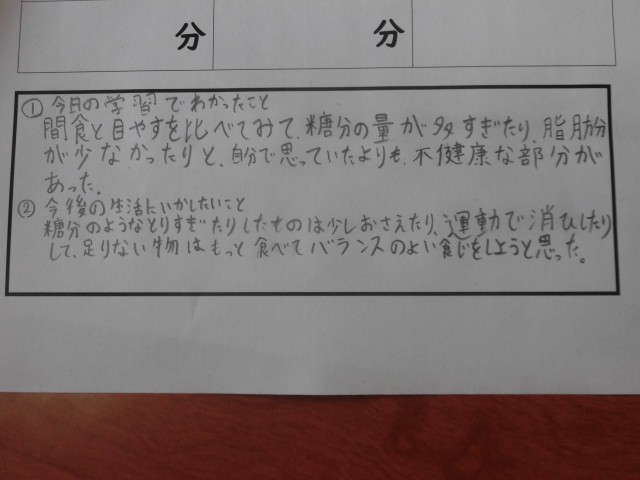 分 分
①今日の学習でわかったこと
間食と目やすを比べてみて、糖分の量が多すぎたり、脂肪分
が少なかったりと、自分で思っていたよりも、不健康な部分が
あった。
②今後の生活にいかしたいこと
糖分のようなとりすぎたりしたものは少しおさえたり、運動で消ひしたり
して、足りない物はもっと食べてバランスのよい食じをしようと思った。